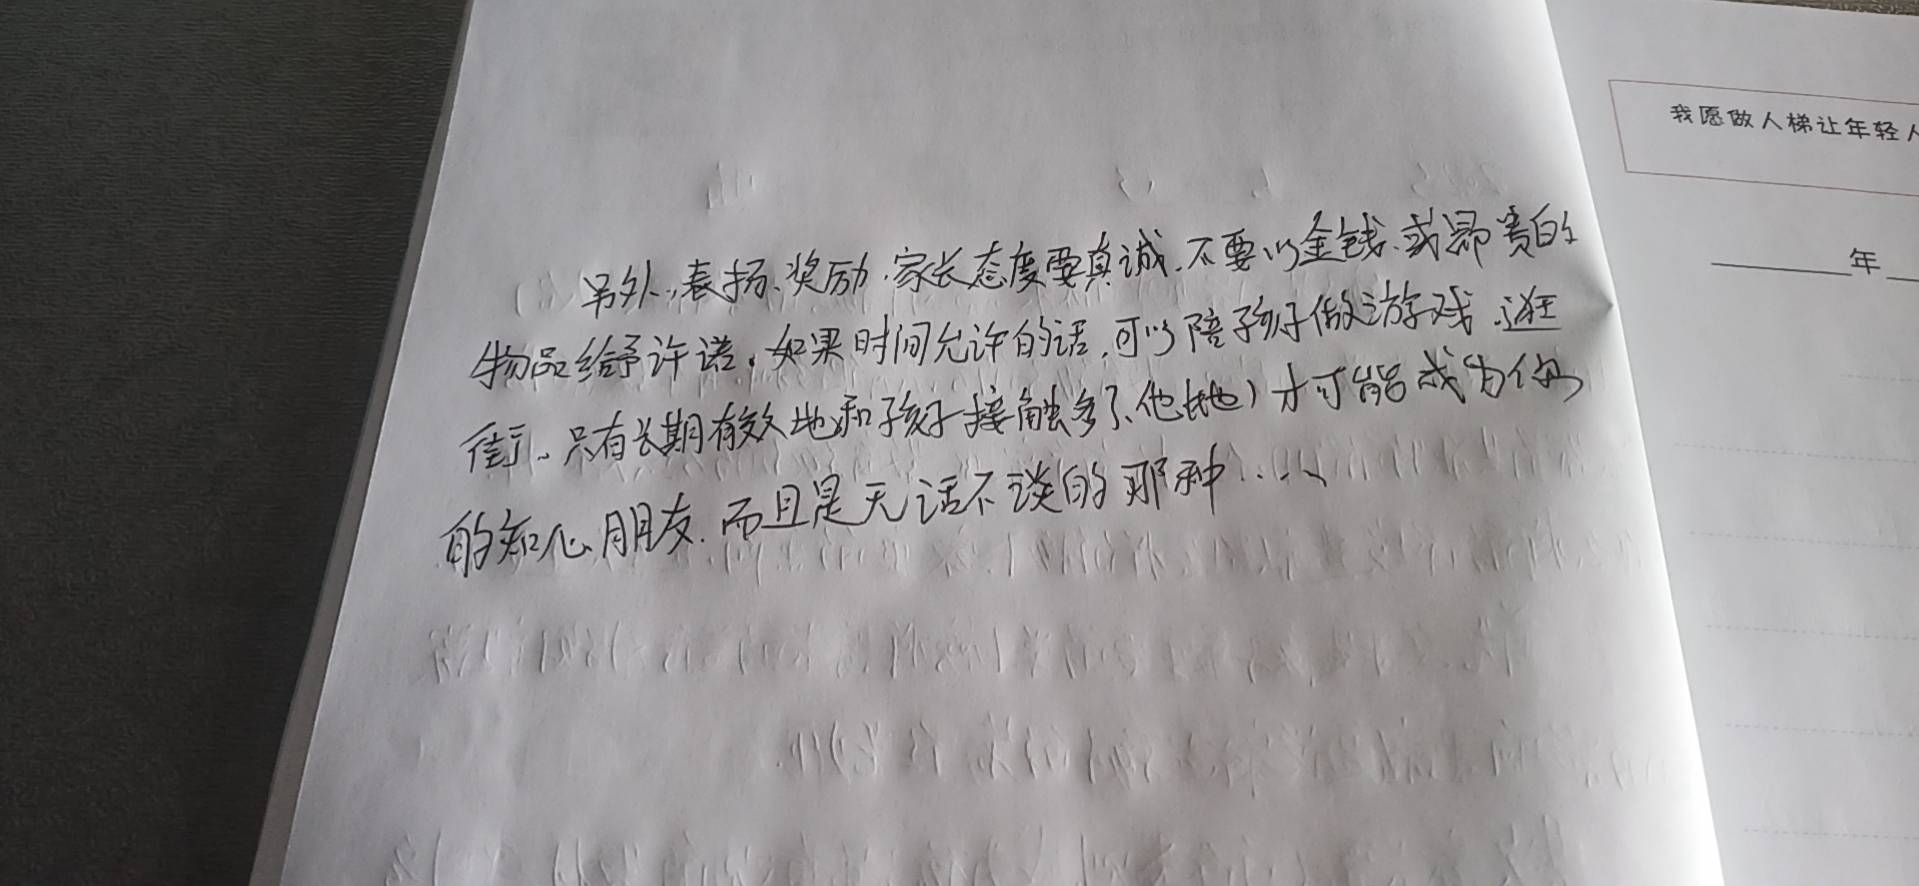 另外,表扬、奖励,家长态度要真诚,不要以金钱、或昂贵的
物品给予许诺。如果时间允许的话,可以陪孩子做游戏、逛
街。只有长期有效地和孩子接触多了、他(她)才可能成为你
的知心朋友,而且是无话不谈的那种……
我愿做人梯让年轻人
年